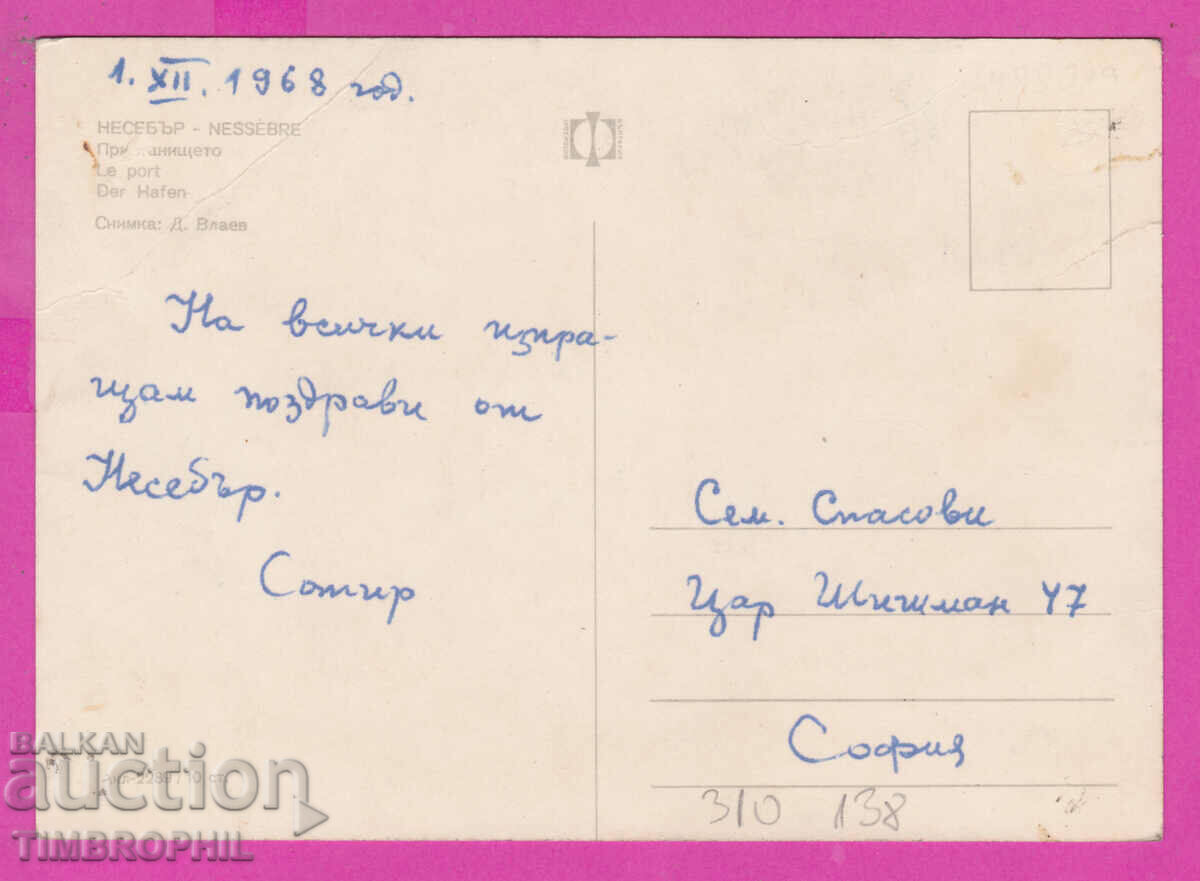 1. XII. 1968 год.
НЕСЕБЪР - NESSEBRE
Пристанището
Le port
Der Hafen
Снимка: Д. Влаев
На всички изпра-
щам поздрави от
Несебър.
Сотир
Сем. Спасови
Цар Шишман 47
София
310 138
BALKAN
auction
TIMBROPHIL